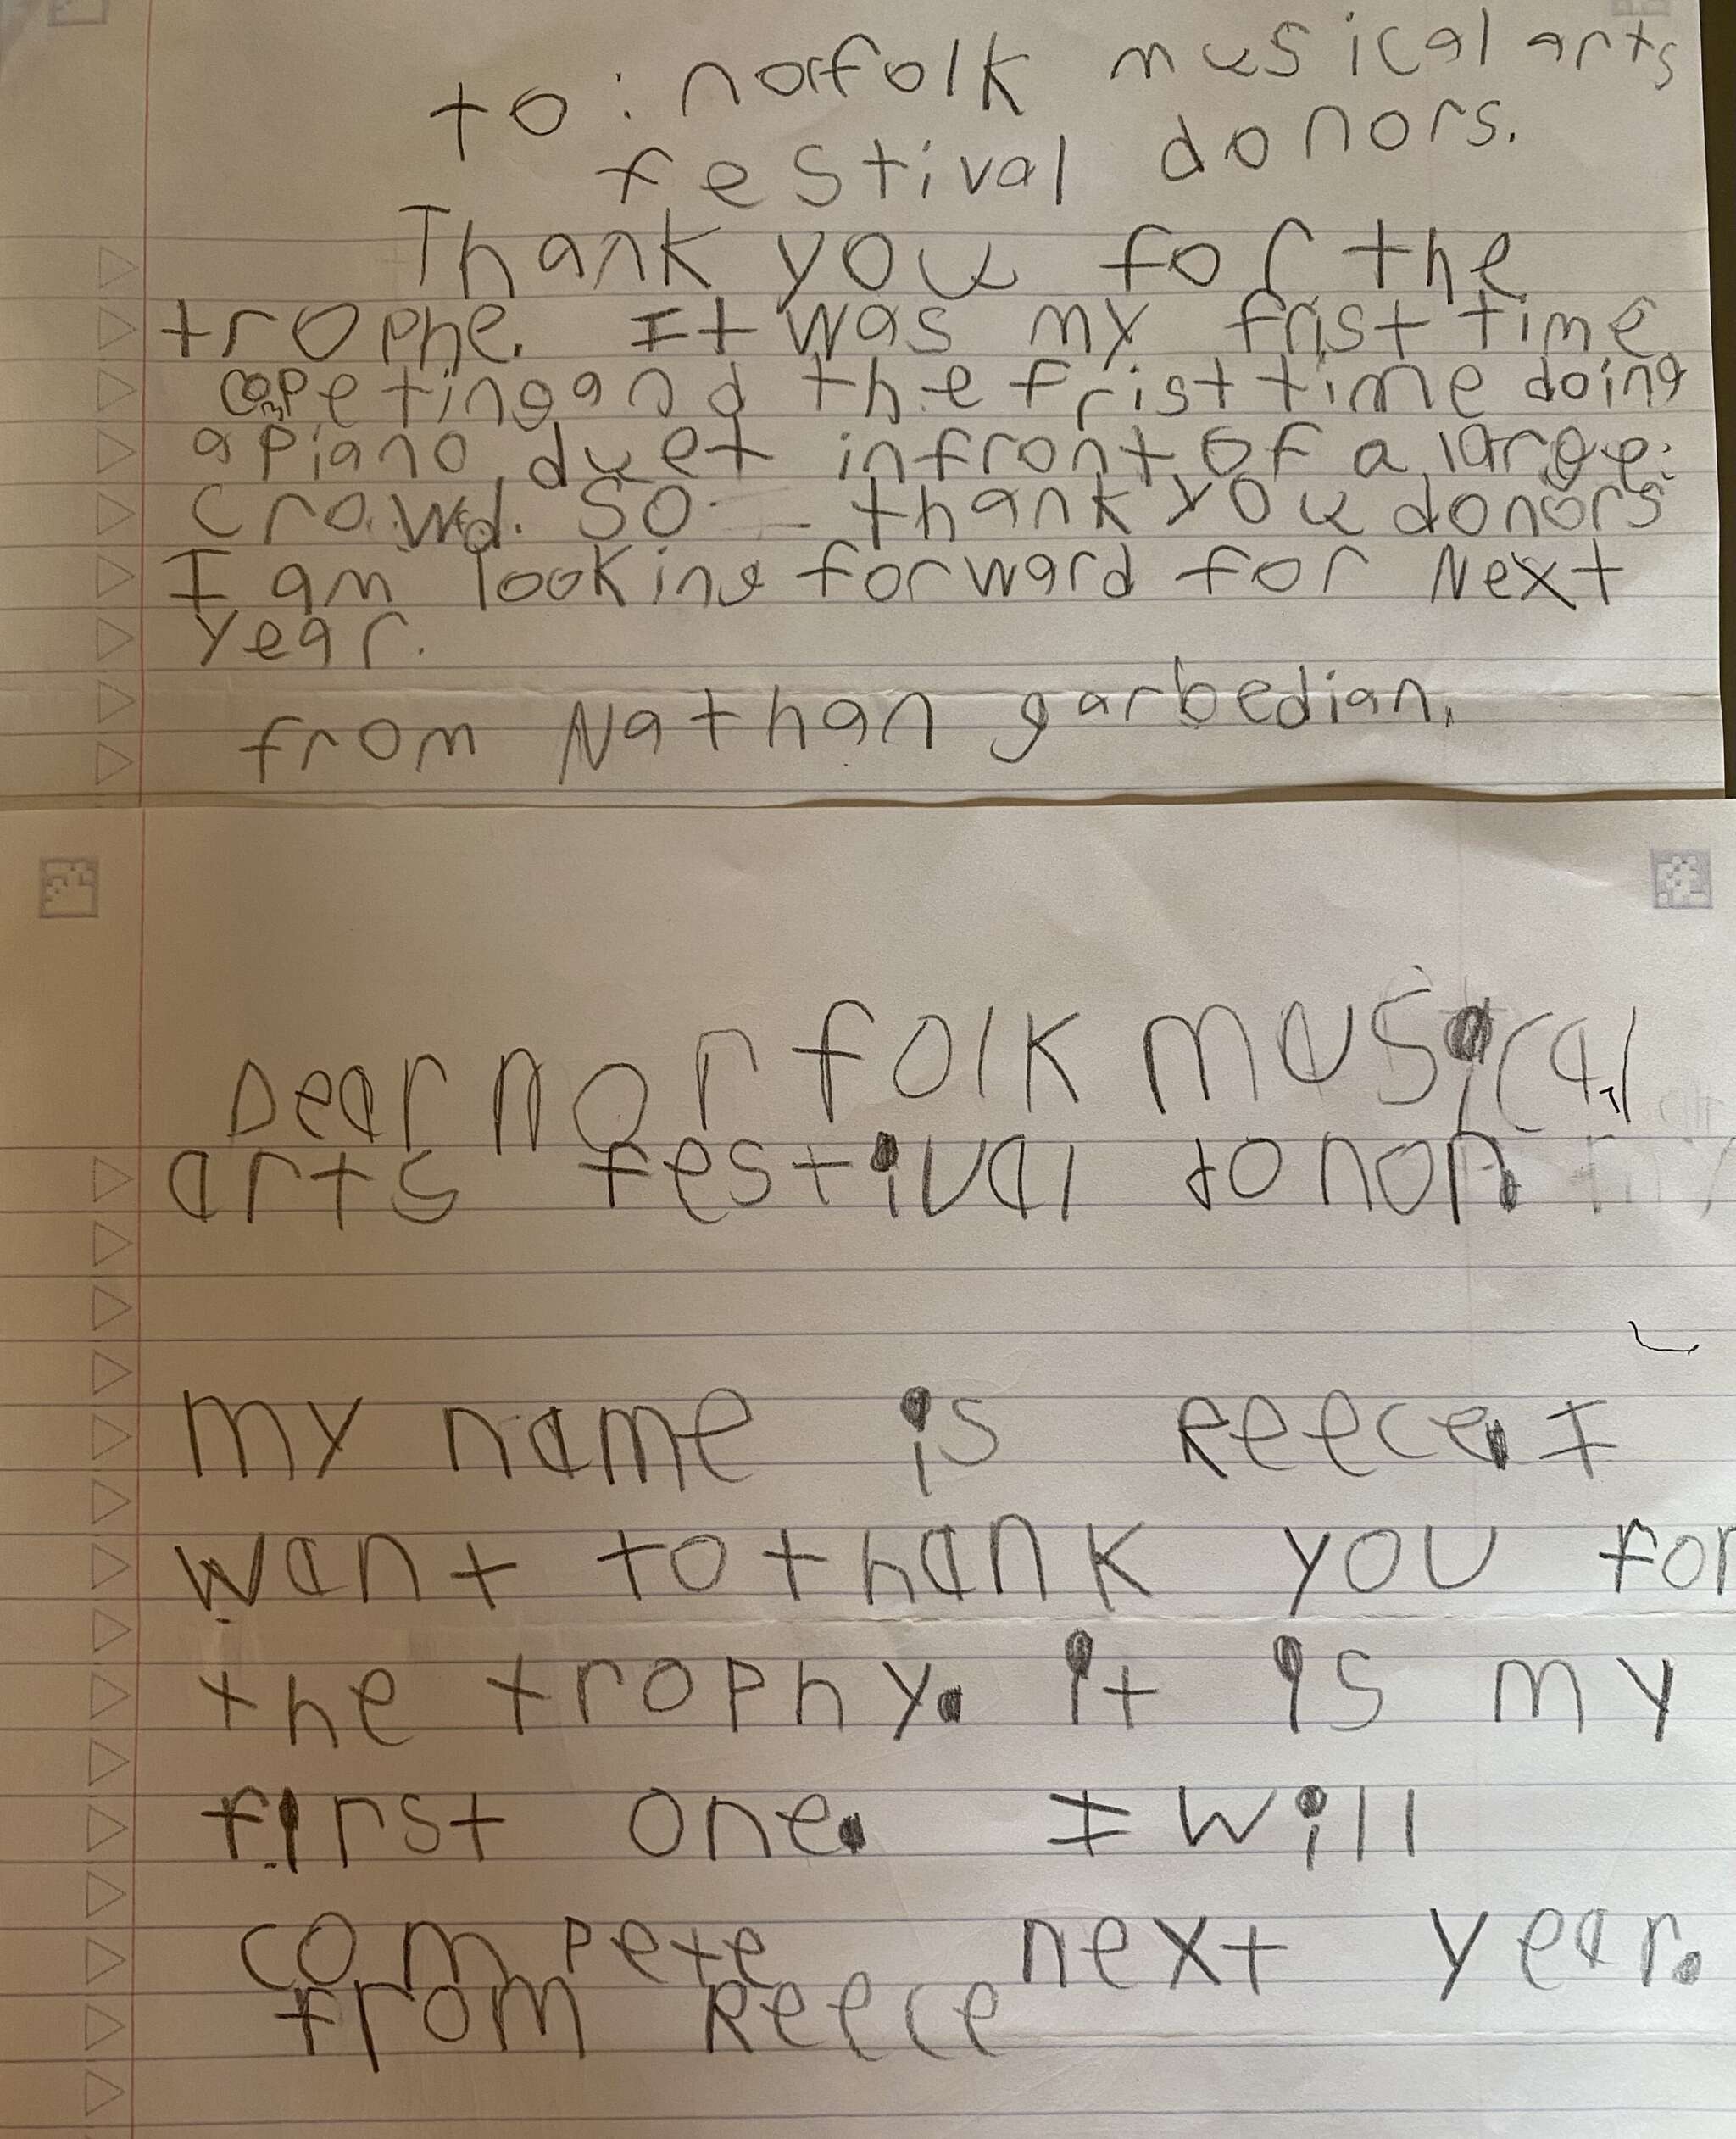 to: norfolk musical arts
festival donors.
Thank you for the
trophe. It was my frist time
competing and the frist time doing
a piano duet infront of a large
crowd. So thank you donors
I am looking forward for Next
year.
from Nathan garbedian.
Dear norfolk musical
arts festival donor.
my name is Reece. I
want to thank you for
the trophy. it is my
first one. I will
compete next year.
from Reece